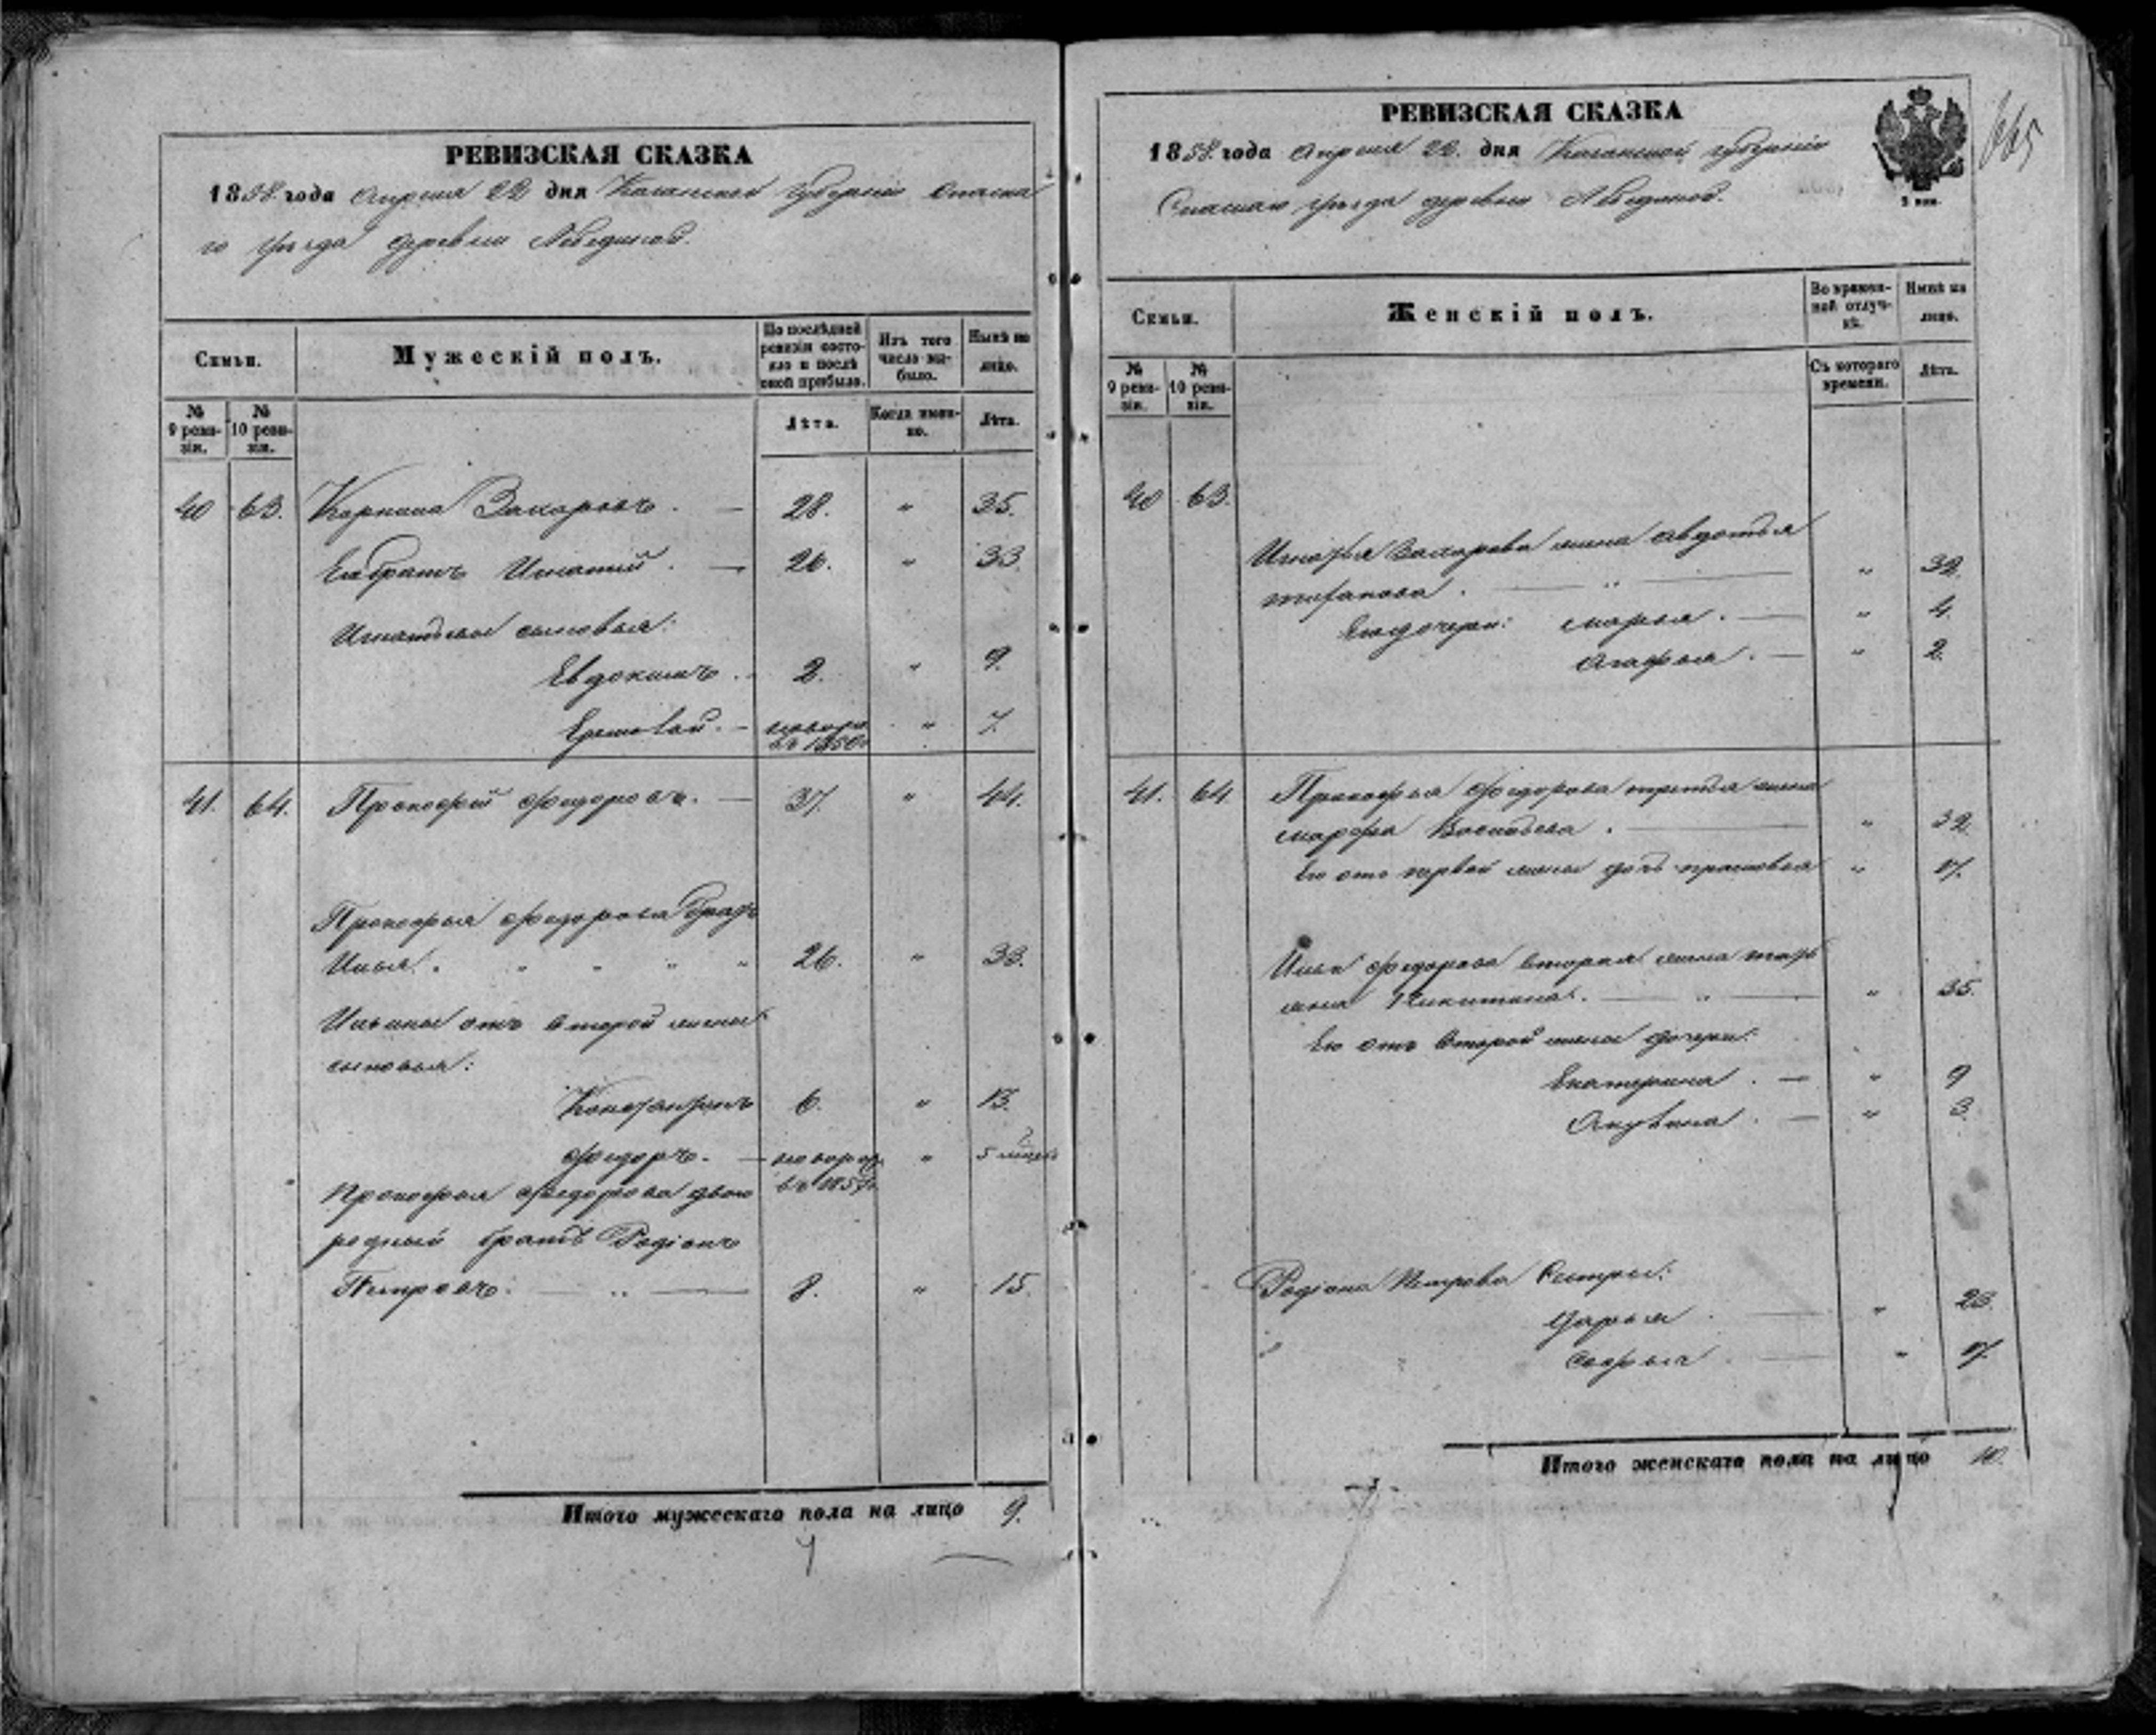 РЕВИЗСКАЯ СКАЗКА
1858 года Апреля 22 дня Казанской губерніи Спаска
го уѣзда деревни Лебединой.
Семьи.
Мужескій полъ.
По послѣдней ревизіи состояло и послѣ оной прибыло.
Изъ того числа выбыло.
Нынѣ на лицо.
№ 9 ревизіи.
№ 10 ревизіи.
Лѣта.
Когда именно.
Лѣта.
40 63. Захаровъ. — 28. " 35.
Его братъ Игнатий. — 26. " 33
Игнатьевы сыновья:
Евдокимъ. 2. " 9.
Еремей. — новорож въ 1850г " 7.
41. 64. Прокофий Федоровъ. — 37. " 44.
Прокофья Федорова братъ
Илья. " " " " 26. " 33.
Ильины отъ второй жены
сыновья:
Константинъ 6. " 13.
Федоръ. — новорож " 5
Прокофья Федорова двою въ 1857г.
родный братъ Родіонъ
Петровъ. — " — 8. " 15.
Итого мужескаго пола на лицо 9.
РЕВИЗСКАЯ СКАЗКА
1858 года Апреля 22 дня Казанской губерніи
Спаскаго уѣзда деревни Лебединой.
665
Семьи.
Женскій полъ.
Во временной отлучкѣ.
Нынѣ на лицо.
№ 9 ревизіи.
№ 10 ревизіи.
Съ котораго времени.
Лѣта.
40 63.
Игнатья Захарова жена Авдотья
. — " — " 32.
Его дочери: Марья. — " 4.
Агафья. — " 2.
41. 64 Прокофья Федорова третья жена
Марфа Васильева. — " 32
Его отъ первой жены дочь Прасковья " 17.
Ильи Федорова вторая жена Тать
яна Никитина. — " — " 35.
Его отъ второй жены дочери:
Екатерина. — " 9
Акулина. — " 3.
Родіона Петрова сестры:
Дарья. — " 23.
Софья. — " 17.
Итого женскаго пола на лицо 10.